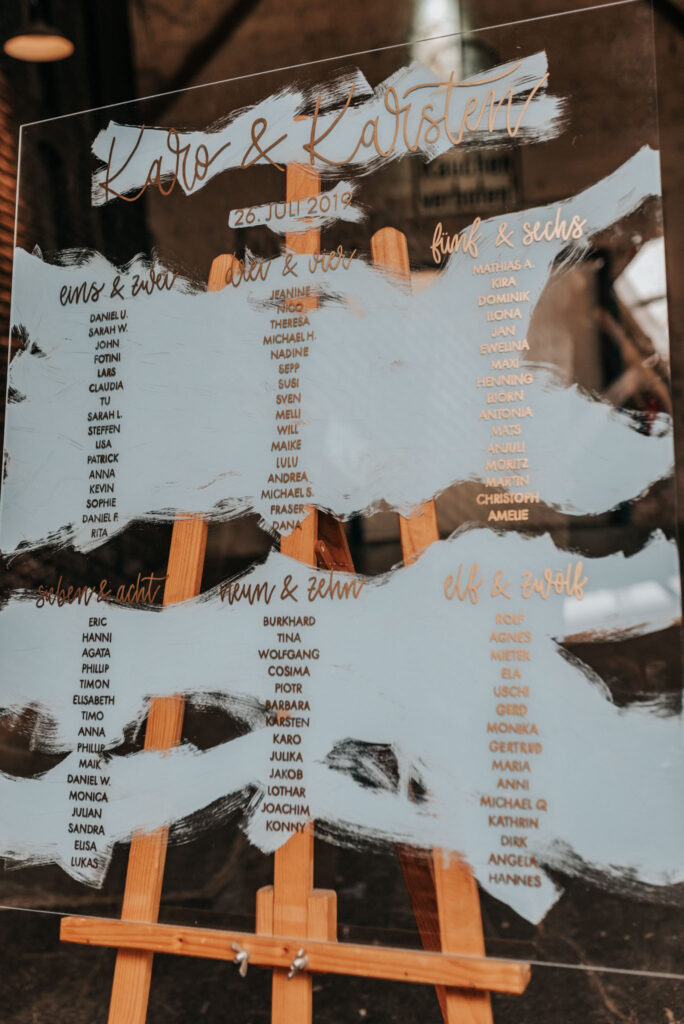 Karo & Karsten
26. JULI 2019
eins & zwei
DANIEL U.
SARAH W.
JOHN
FOTINI
LARS
CLAUDIA
TU
SARAH L.
STEFFEN
LISA
PATRICK
ANNA
KEVIN
SOPHIE
DANIEL F.
RITA
drei & vier
JEANINE
NICO
THERESA
MICHAEL H.
NADINE
SEPP
SUSI
SVEN
MELLI
WILL
MAIKE
LULU
ANDREA
MICHAEL S.
FRASER
DANA
fünf & sechs
MATHIAS A.
KIRA
DOMINIK
ILONA
JAN
EWELINA
MAXI
HENNING
BJÖRN
ANTONIA
MATS
ANJULI
MORITZ
MARTIN
CHRISTOPH
AMELIE
sieben & acht
ERIC
HANNI
AGATA
PHILLIP
TIMON
ELISABETH
TIMO
ANNA
PHILLIP
MAIK
DANIEL W.
MONICA
JULIAN
SANDRA
ELISA
LUKAS
neun & zehn
BURKHARD
TINA
WOLFGANG
COSIMA
PIOTR
BARBARA
KARSTEN
KARO
JULIKA
JAKOB
LOTHAR
JOACHIM
KONNY
elf & zwölf
ROLF
AGNES
MIETEK
ELA
USCHI
GERD
MONIKA
GERTRUD
MARIA
ANNI
MICHAEL Q
KATHRIN
DIRK
ANGELA
HANNES
Rauchen
verboten